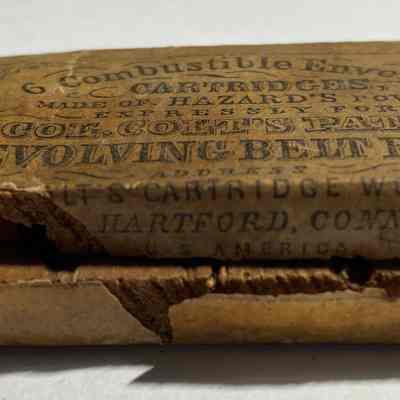 6 Combustible Enve
CARTRIDGES,
MADE OF HAZARD'S PO
EXPRESSLY FOR
COL. COLT'S PAT
EVOLVING BELT P
ADDRESS
LT'S CARTRIDGE W
HARTFORD, CONN
U.S. AMERICA.